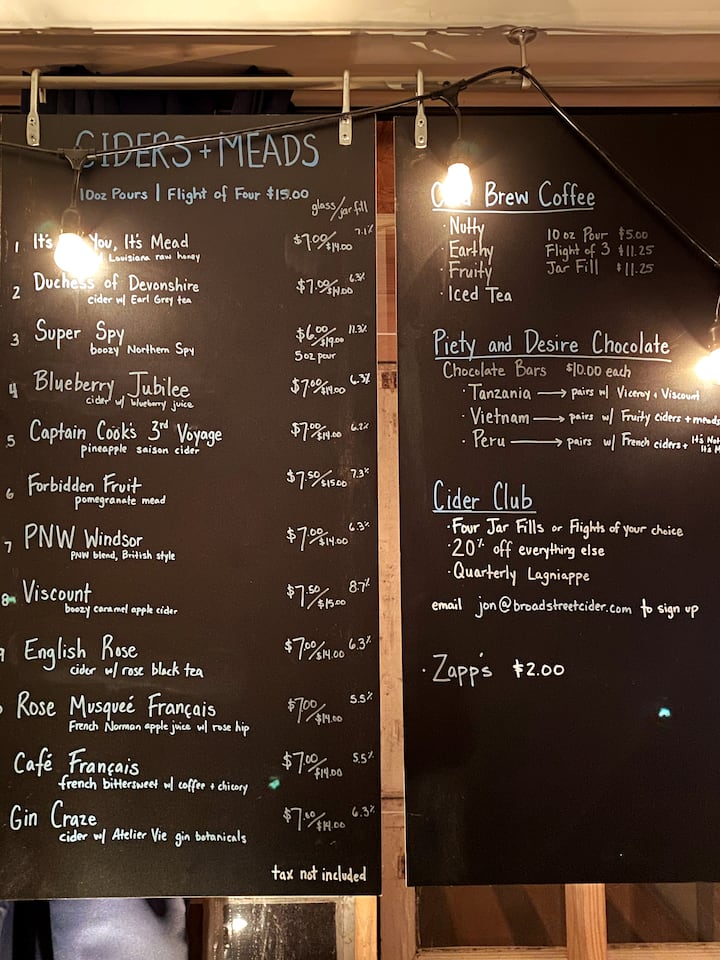 CIDERS + MEADS
10oz Pours | Flight of Four $15.00
glass/jar fill
1 It's You, It's Mead $7.00/$14.00 7.1%
Louisiana raw honey
2 Duchess of Devonshire $7.00/$14.00 6.3%
cider w/ Earl Grey tea
3 Super Spy $6.00/$19.00 11.3%
boozy Northern Spy 5oz pour
4 Blueberry Jubilee $7.00/$14.00 6.3%
cider w/ blueberry juice
5 Captain Cook's 3rd Voyage $7.00/$14.00 6.2%
pineapple saison cider
6 Forbidden Fruit $7.50/$15.00 7.3%
pomegranate mead
7 PNW Windsor $7.00/$14.00 6.3%
PNW blend, British style
8 Viscount $7.50/$15.00 8.7%
boozy caramel apple cider
9 English Rose $7.00/$14.00 6.3%
cider w/ rose black tea
Rose Musqueé Français $7.00/$14.00 5.5%
French Norman apple juice w/ rose hip
Café Français $7.00/$14.00 5.5%
french bittersweet w/ coffee + chicory
Gin Craze $7.00/$14.00 6.3%
cider w/ Atelier Vie gin botanicals
tax not included
Brew Coffee
· Nutty 10 oz Pour $5.00
· Earthy Flight of 3 $11.25
· Fruity Jar Fill $11.25
· Iced Tea
Piety and Desire Chocolate
Chocolate Bars $10.00 each
· Tanzania → pairs w/ Viceroy + Viscount
· Vietnam → pairs w/ Fruity ciders + meads
· Peru → pairs w/ French ciders + It's Not
It's
Cider Club
· Four Jar Fills or Flights of your choice
· 20% off everything else
· Quarterly Lagniappe
email jon@broadstreetcider.com to sign up
· Zapp's $2.00